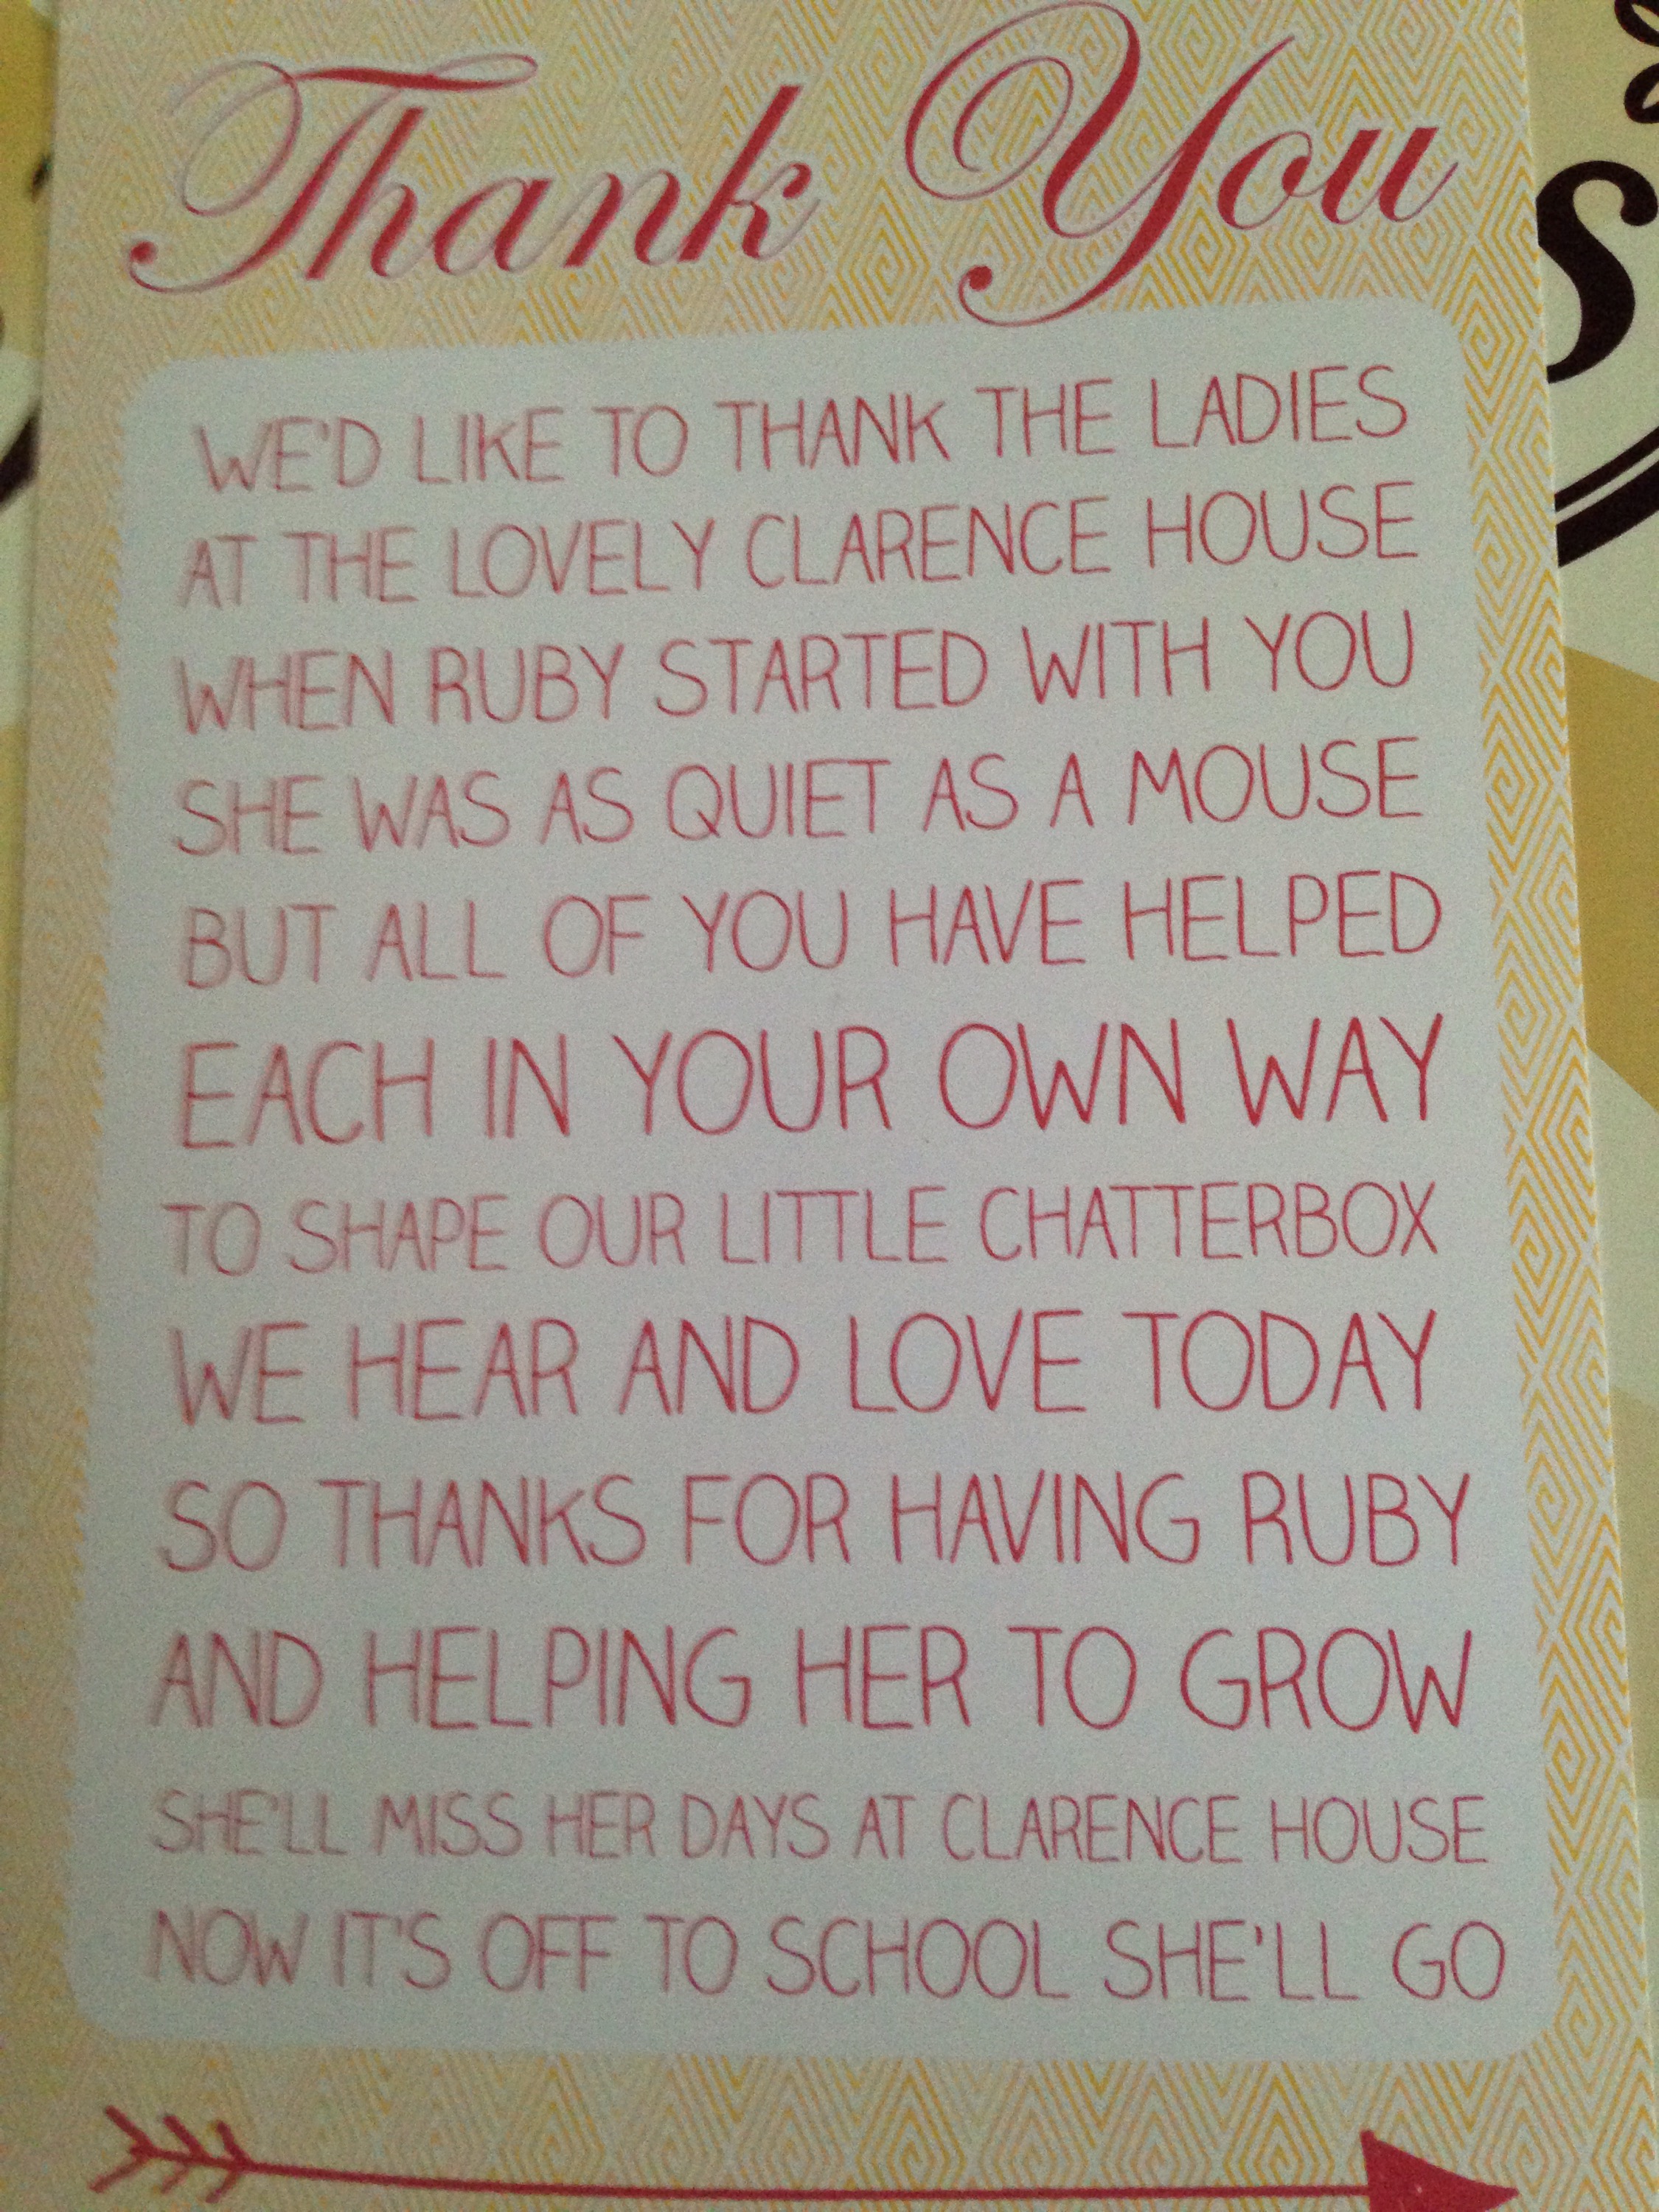 Thank You
WE'D LIKE TO THANK THE LADIES
AT THE LOVELY CLARENCE HOUSE
WHEN RUBY STARTED WITH YOU
SHE WAS AS QUIET AS A MOUSE
BUT ALL OF YOU HAVE HELPED
EACH IN YOUR OWN WAY
TO SHAPE OUR LITTLE CHATTERBOX
WE HEAR AND LOVE TODAY
SO THANKS FOR HAVING RUBY
AND HELPING HER TO GROW
SHE'LL MISS HER DAYS AT CLARENCE HOUSE
NOW IT'S OFF TO SCHOOL SHE'LL GO